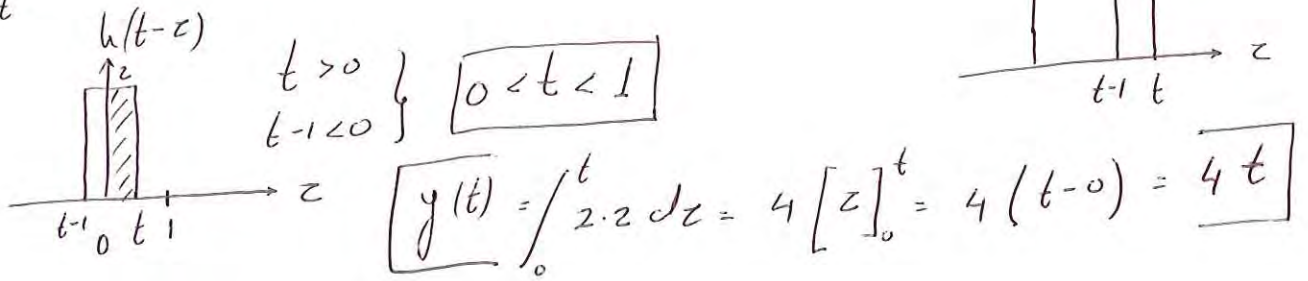 t
h(t-τ)
2
t-1 0 t 1 τ
t > 0
t-1 < 0 } 0 < t < 1
t-1 t τ
y(t) = ∫₀ᵗ 2·2 dτ = 4 [τ]₀ᵗ = 4 (t-0) = 4 t